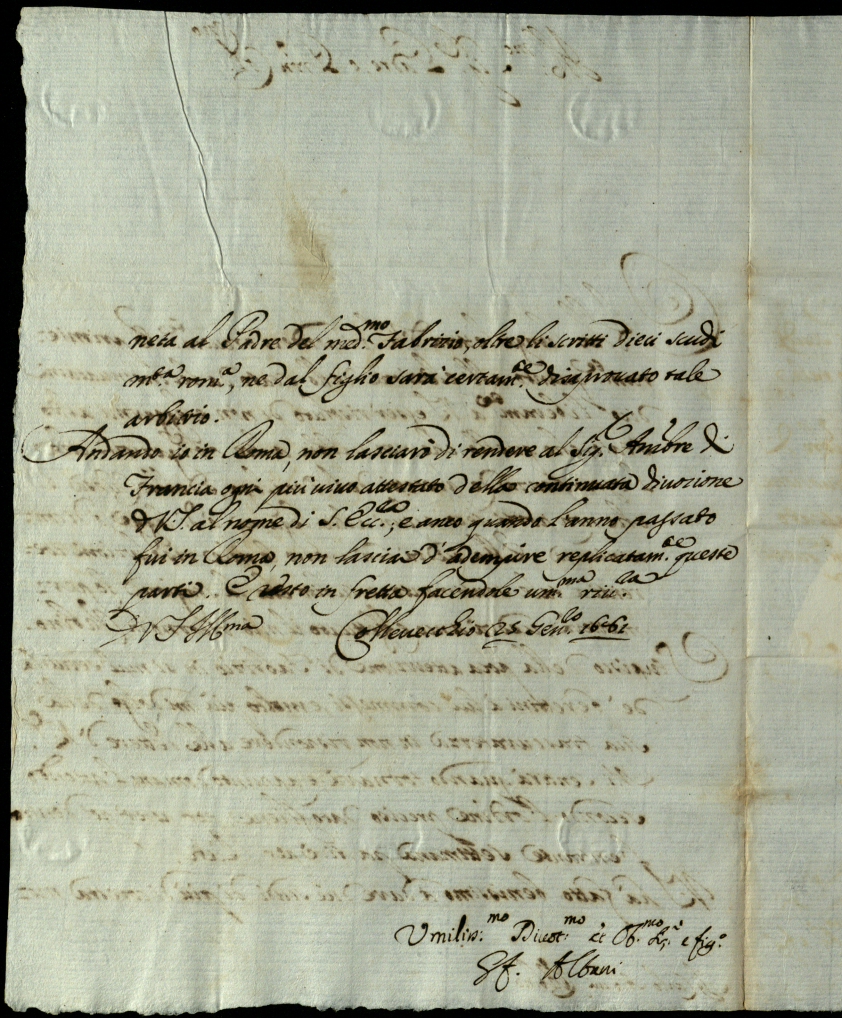 neta al Padre del med.mo Fabritio, oltre li scritti dieci scudi
mta rom.a, ne dal figlio sarà certam.te disaprovato tale
arbitrio.
Andando io in Roma, non lasciarò di rendere al Sig.r Ambre di
Francia ogni più vivo attestato della continuata divozione
di VS al nome di S. Ecc.za, e anco quando l'anno passato
fui in Roma, non lasciai d'adempire replicatam.te queste
parti. E resto in fretta facendole um.ma riv.za
Di VS Ill.ma Collevecchio 25 Gen.ro 1661
Umiliss.mo Divot.mo et Ob.mo e fig.o
Albani